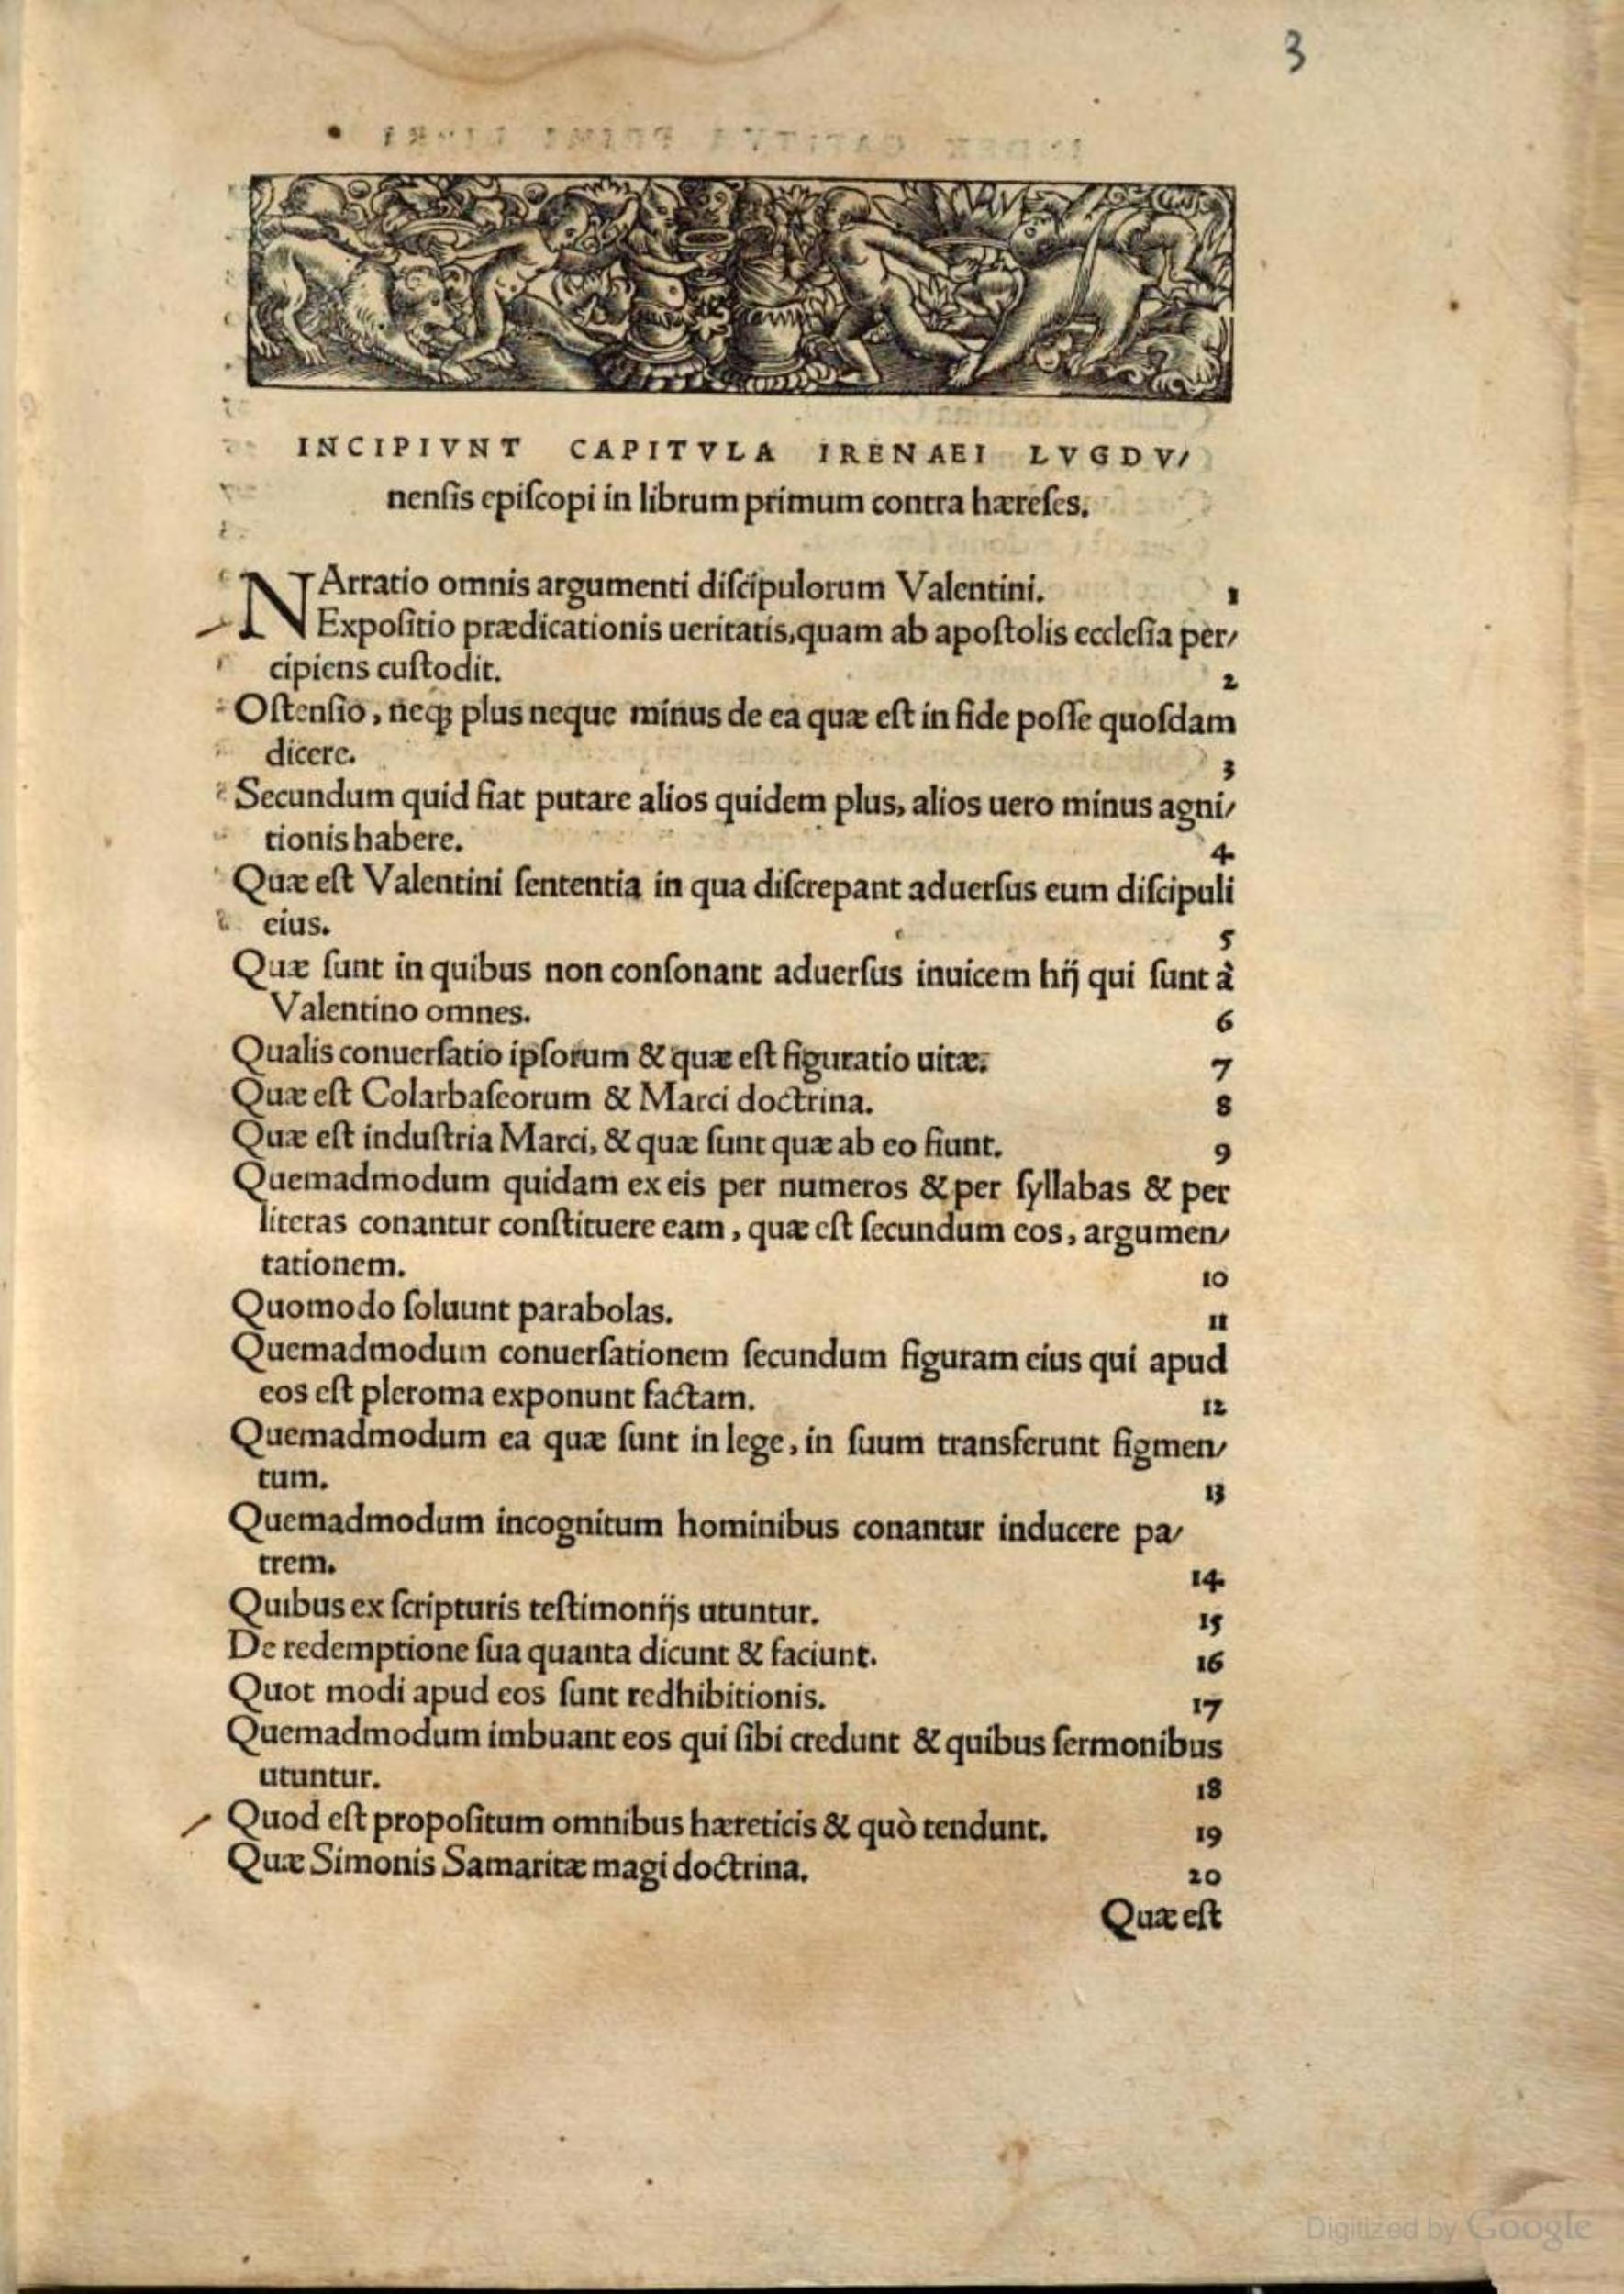 3
INCIPIVNT CAPITVLA IRENAEI LVGDV/
nenſis epiſcopi in librum primum contra hæreſes.
NArratio omnis argumenti diſcipulorum Valentini. 1
Expoſitio prædicationis ueritatis, quam ab apoſtolis eccleſia per/
cipiens cuſtodit. 2
Oſtenſio, neqꝫ plus neque minus de ea quæ eſt in fide poſſe quoſdam
dicere. 3
Secundum quid fiat putare alios quidem plus, alios uero minus agni/
tionis habere. 4
Quæ eſt Valentini ſententia in qua diſcrepant aduerſus eum diſcipuli
eius. 5
Quæ ſunt in quibus non conſonant aduerſus inuicem hij qui ſunt à
Valentino omnes. 6
Qualis conuerſatio ipſorum & quæ eſt figuratio uitæ. 7
Quæ eſt Colarbaſeorum & Marci doctrina. 8
Quæ eſt induſtria Marci, & quæ ſunt quæ ab eo fiunt. 9
Quemadmodum quidam ex eis per numeros & per ſyllabas & per
literas conantur conſtituere eam, quæ eſt ſecundum eos, argumen/
tationem. 10
Quomodo ſoluunt parabolas. 11
Quemadmodum conuerſationem ſecundum figuram eius qui apud
eos eſt pleroma exponunt factam. 12
Quemadmodum ea quæ ſunt in lege, in ſuum transferunt figmen/
tum. 13
Quemadmodum incognitum hominibus conantur inducere pa/
trem. 14
Quibus ex ſcripturis teſtimonijs utuntur. 15
De redemptione ſua quanta dicunt & faciunt. 16
Quot modi apud eos ſunt redhibitionis. 17
Quemadmodum imbuant eos qui ſibi credunt & quibus ſermonibus
utuntur. 18
Quod eſt propoſitum omnibus hæreticis & quò tendunt. 19
Quæ Simonis Samaritæ magi doctrina. 20
Quæ eſt
Digitized by Google